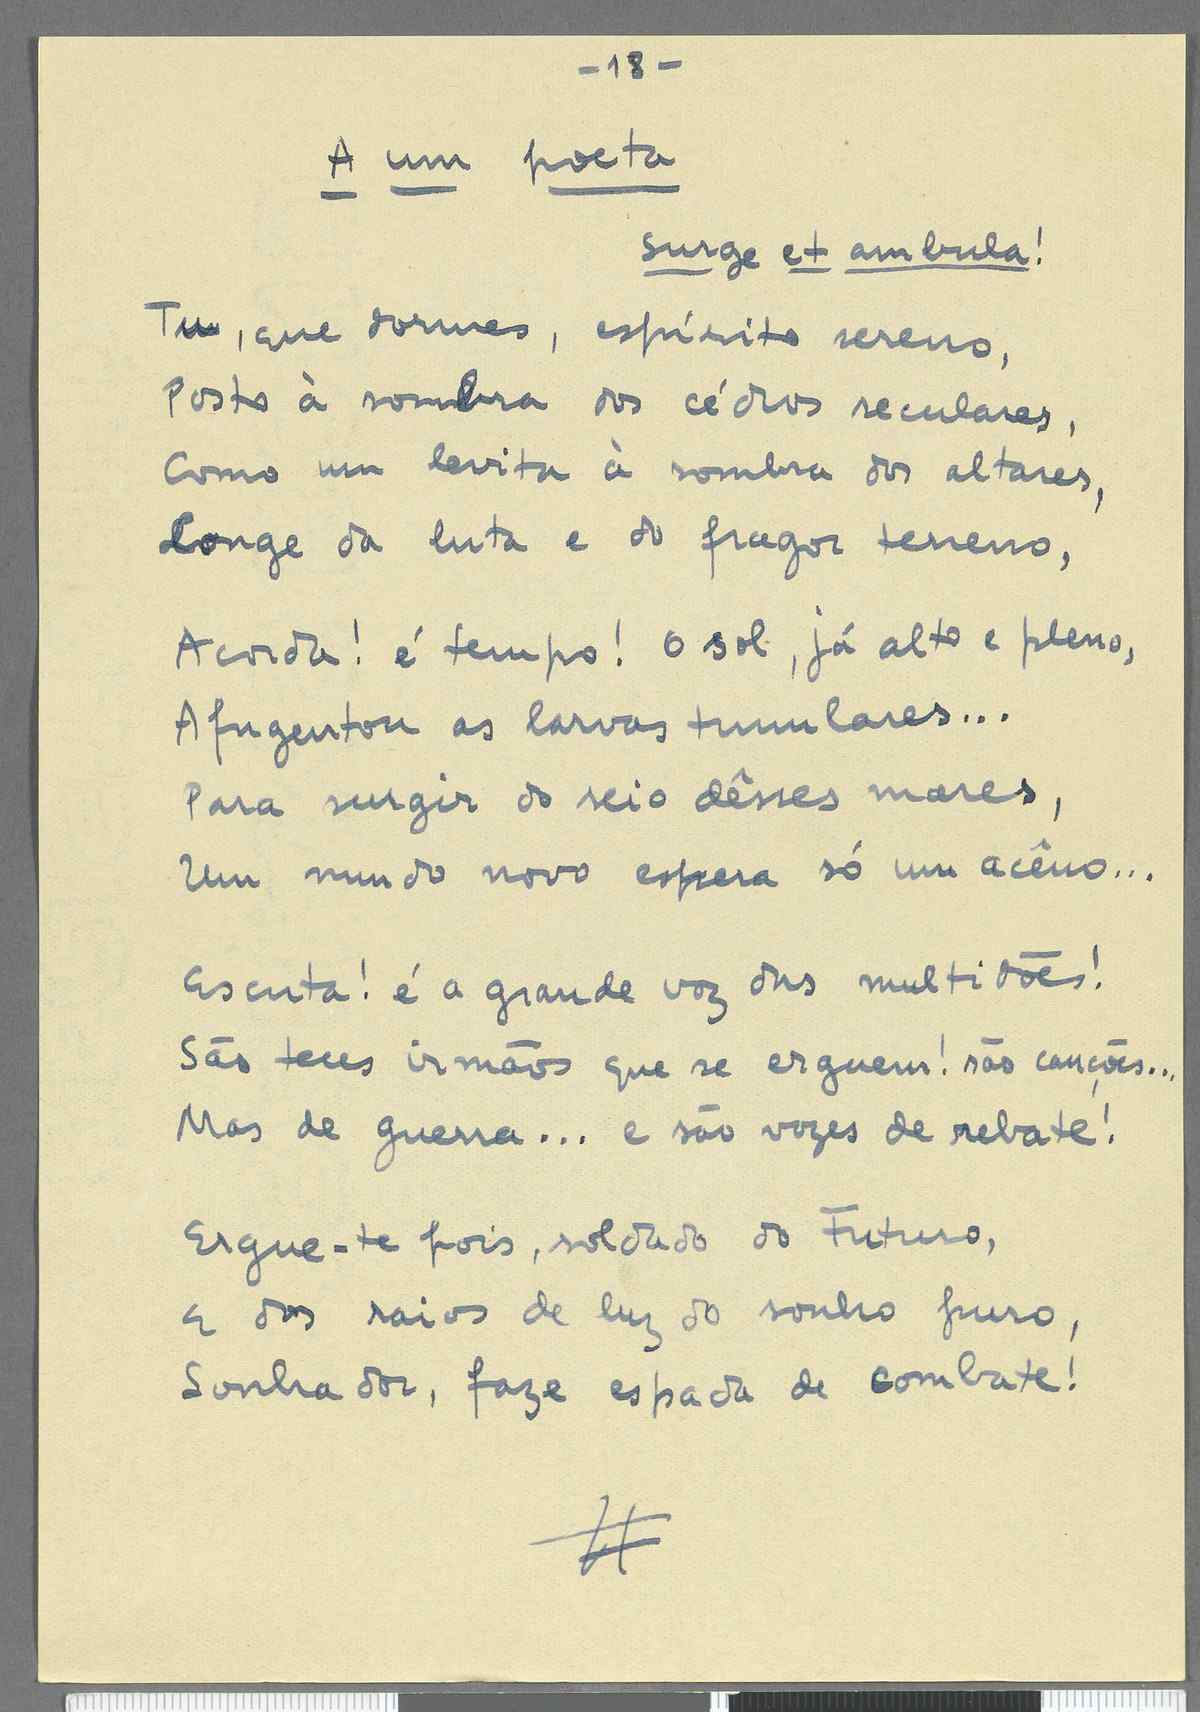 -18-
A um poeta
Surge et ambula!
Tu, que dormes, espírito sereno,
Posto à sombra dos cédros seculares,
Como um levita à sombra dos altares,
Longe da luta e do fragor terreno,
Acorda! é tempo! O sol, já alto e pleno,
Afugentou as larvas tumulares...
Para surgir do seio dêsses mares,
Um mundo novo espera só um acêno...
Escuta! é a grande voz das multidões!
São teus irmãos que se erguem! são canções...
Mas de guerra... e são vozes de rebate!
Ergue-te pois, soldado do Futuro,
E dos raios de luz do sonho puro,
Sonhador, faze espada de combate!